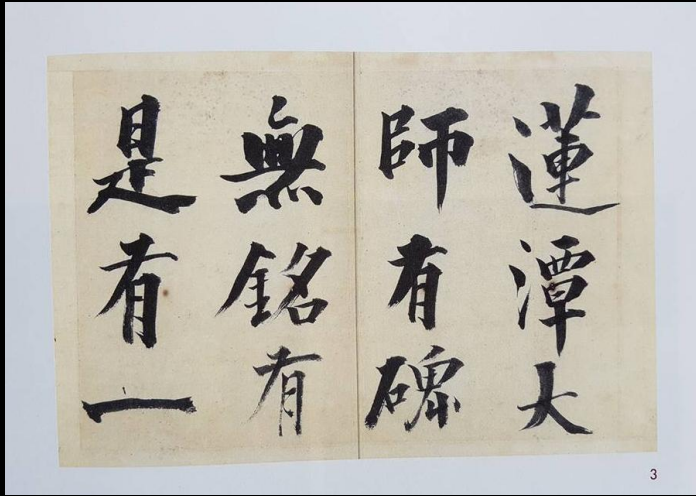 蓮潭大
師有碑
無銘有
是有一
3